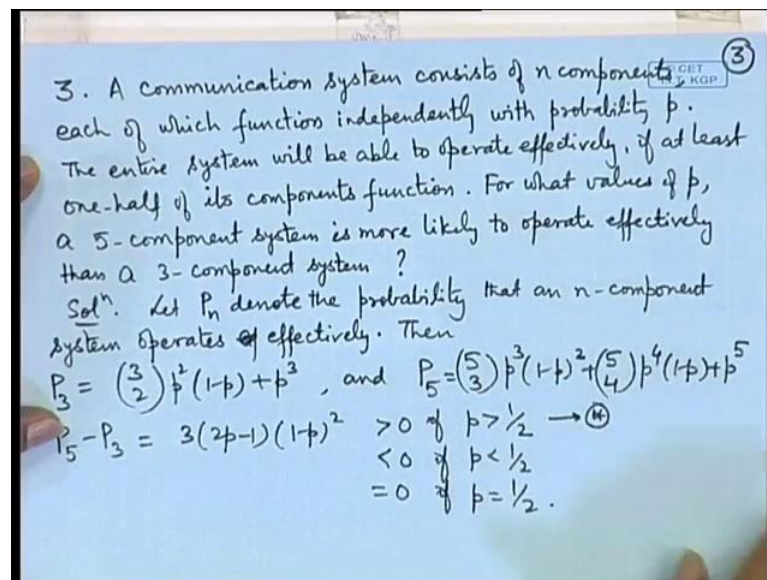 3
3. A communication system consists of n components,
each of which function independently with probability p.
The entire system will be able to operate effectively, if at least
one-half of its components function. For what values of p,
a 5-component system is more likely to operate effectively
than a 3-component system ?
Solⁿ. Let Pₙ denote the probability that an n-component
system operates effectively. Then
P₃ = (3 2) p²(1-p) + p³ , and P₅ = (5 3) p³(1-p)² + (5 4) p⁴(1-p) + p⁵
P₅ - P₃ = 3(2p-1)(1-p)² >0 if p > 1/2 →
<0 if p < 1/2
=0 if p = 1/2 .